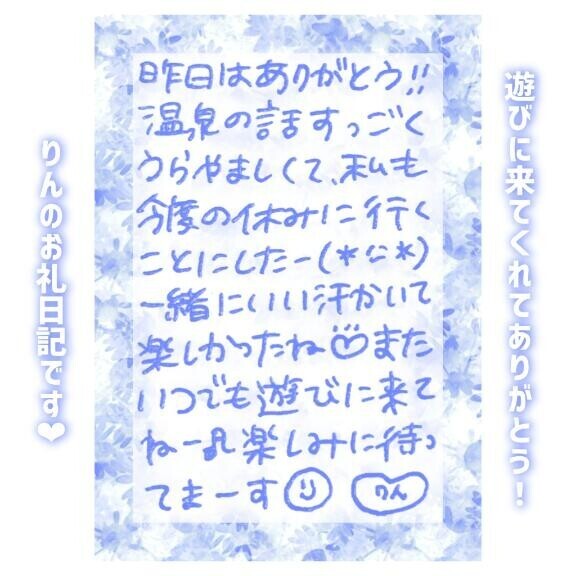 遊びに来てくれてありがとう！
昨日はありがとう!!
温泉の話すっごく
うらやましくて、私も
今度の休みに行く
ことにしたー(*'▽'*)
一緒にいい汗かいて
楽しかったね♡また
いつでも遊びに来て
ねー♪楽しみに待っ
てまーす☺ りん
りんのお礼日記です❤